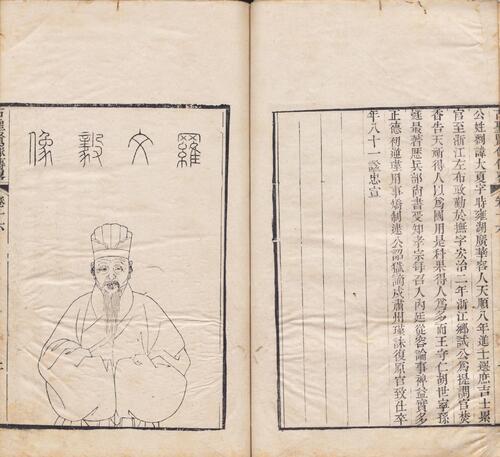 古聖賢像傳畧
公姓劉諱大夏字時雍湖廣華容人天順八年進士選庶吉士累
官至浙江左布政勤於撫字宏治二年浙江鄉試公爲提調官焚
香告天祈得人以爲國用是科果得人爲多而王守仁胡世寧孫
燧最著歷兵部尚書受知孝宗每召入內廷從容論事裨益實多
正德初逆瑾用事矯制逮公詔獄謫戍肅州瑾誅復原官致仕卒
年八十一諡忠宣
羅文毅像
古聖賢像傳畧 卷十六